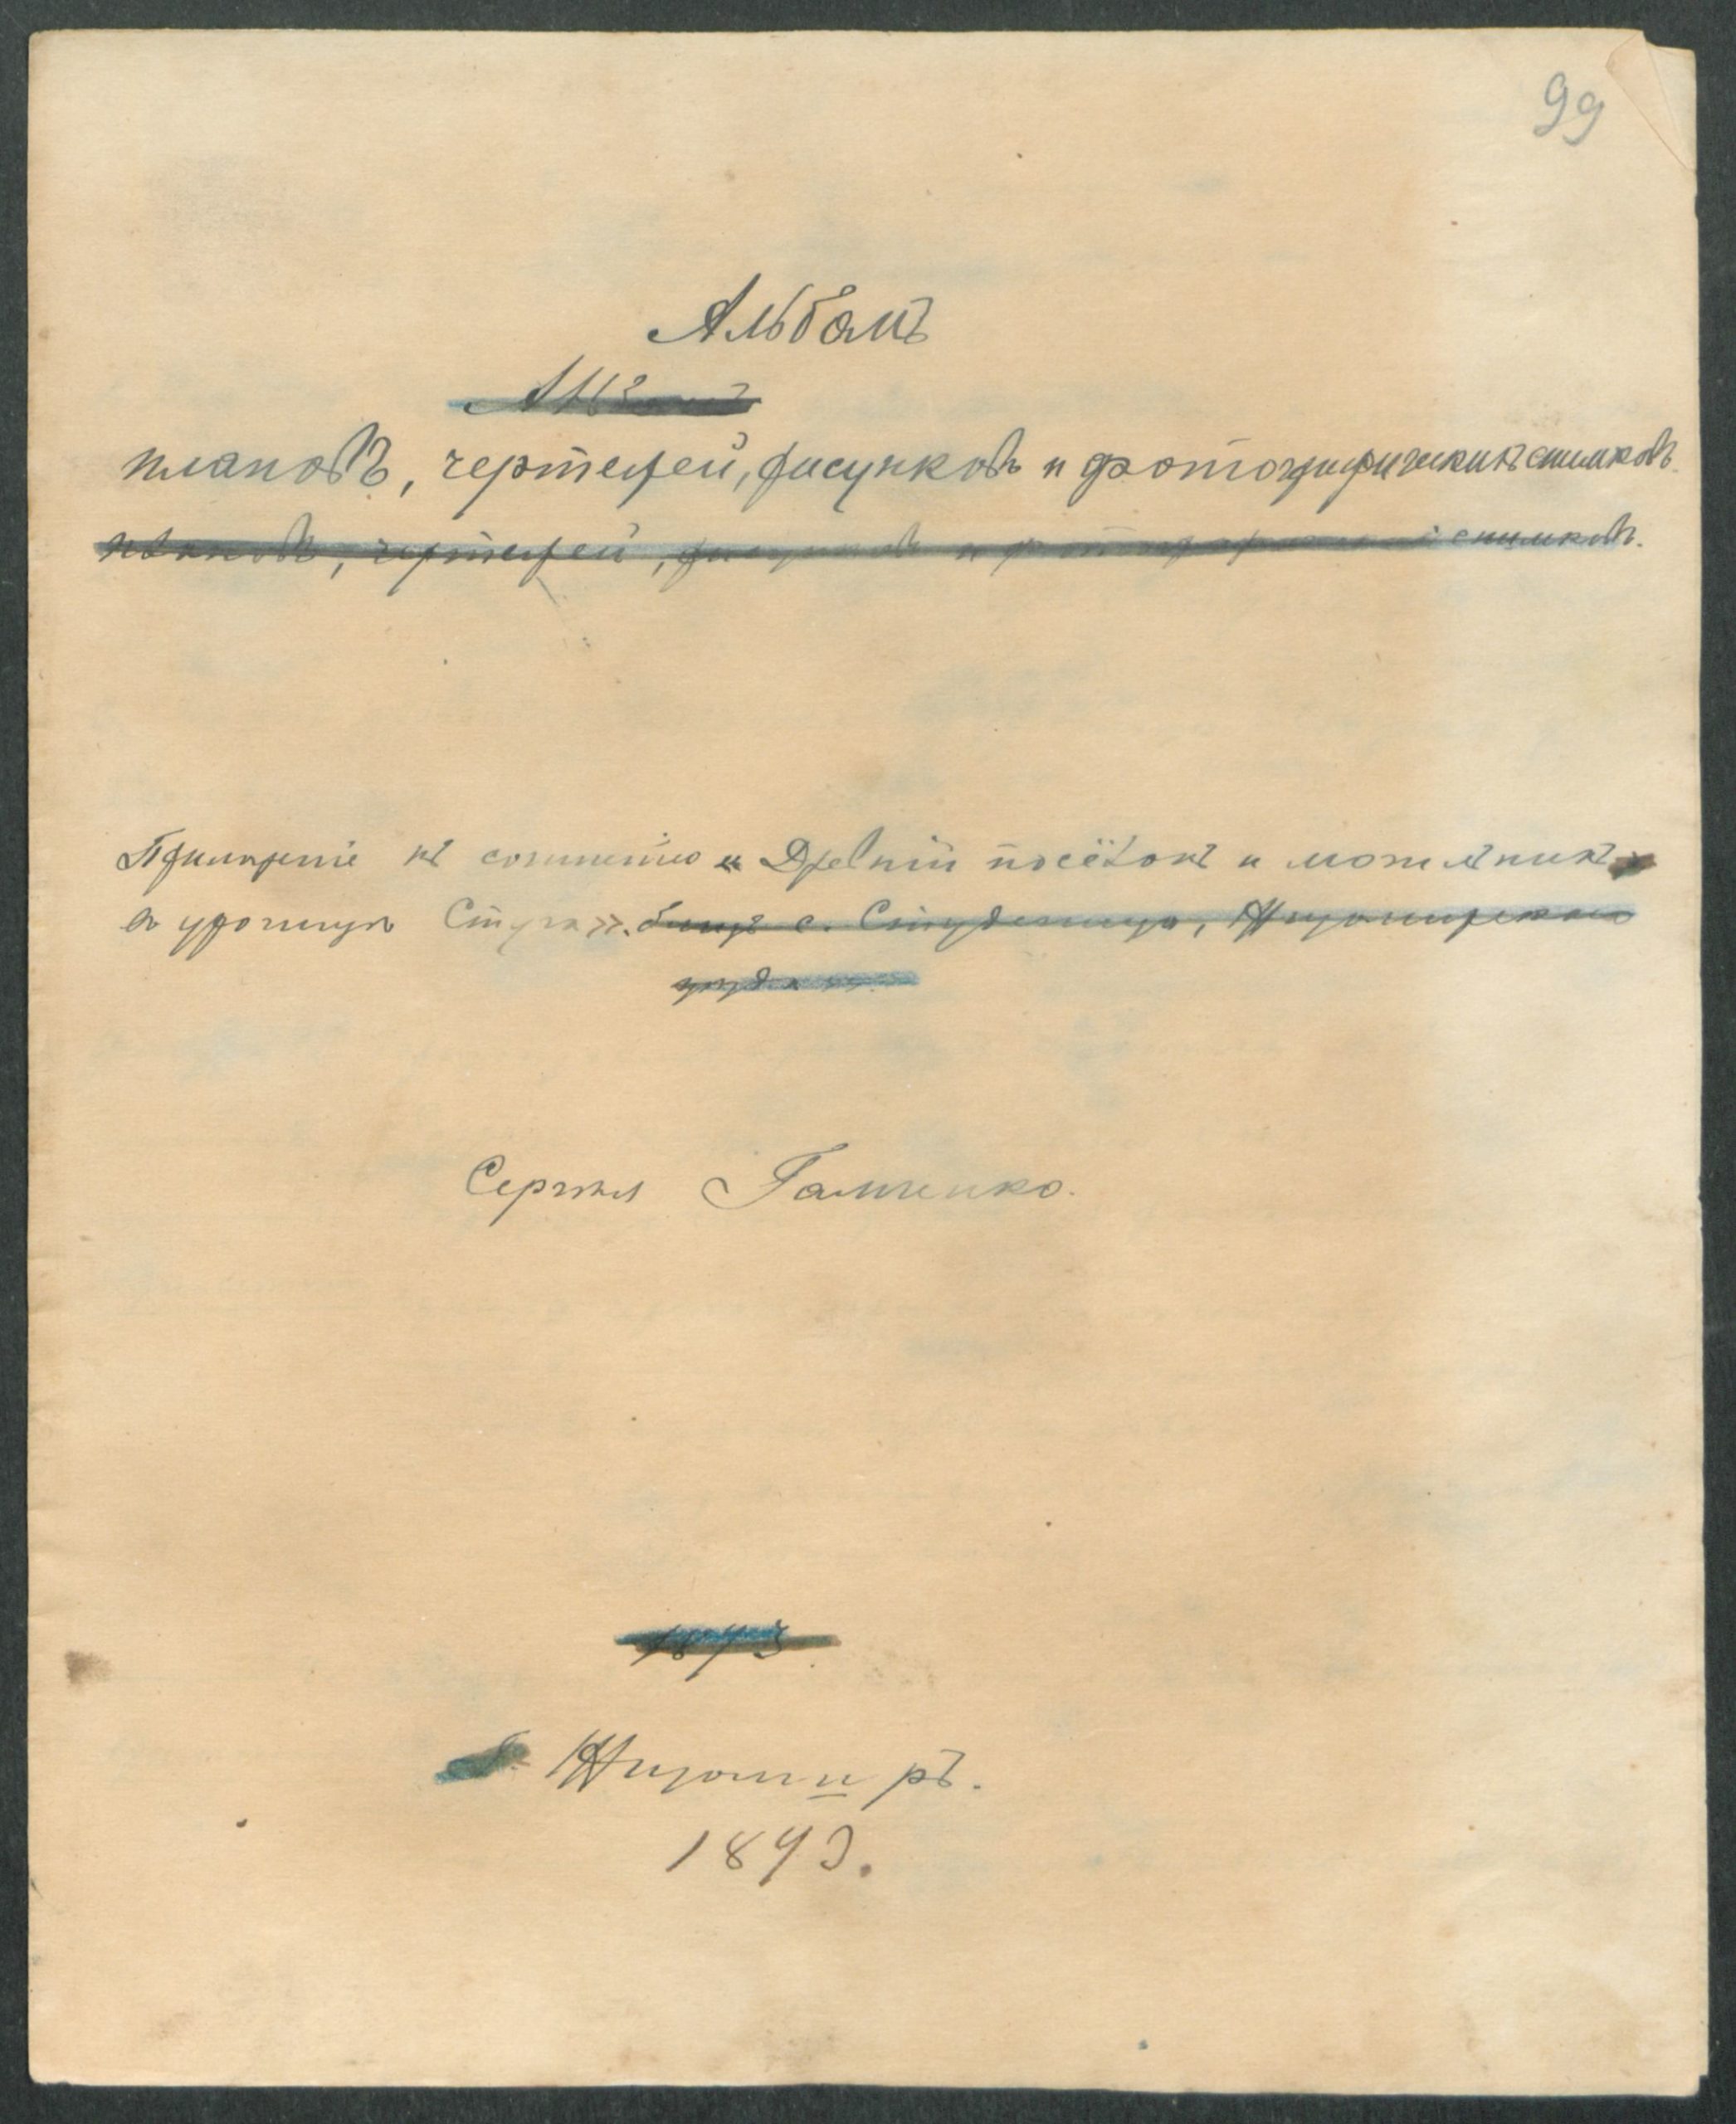 99
Альбомъ
Альбомъ
плановъ, чертежей, рисунковъ и фотографическихъ снимковъ.
плановъ, чертежей, рисунковъ и фотографическихъ снимковъ.
Приложеніе къ сочиненію « Древній посёлокъ и могильникъ
въ урочищѣ Стуга». близъ с. Студеницы, Житомирскаго
уѣзда
Сергѣя Гамченко.
1893.
Житомиръ.
1893.